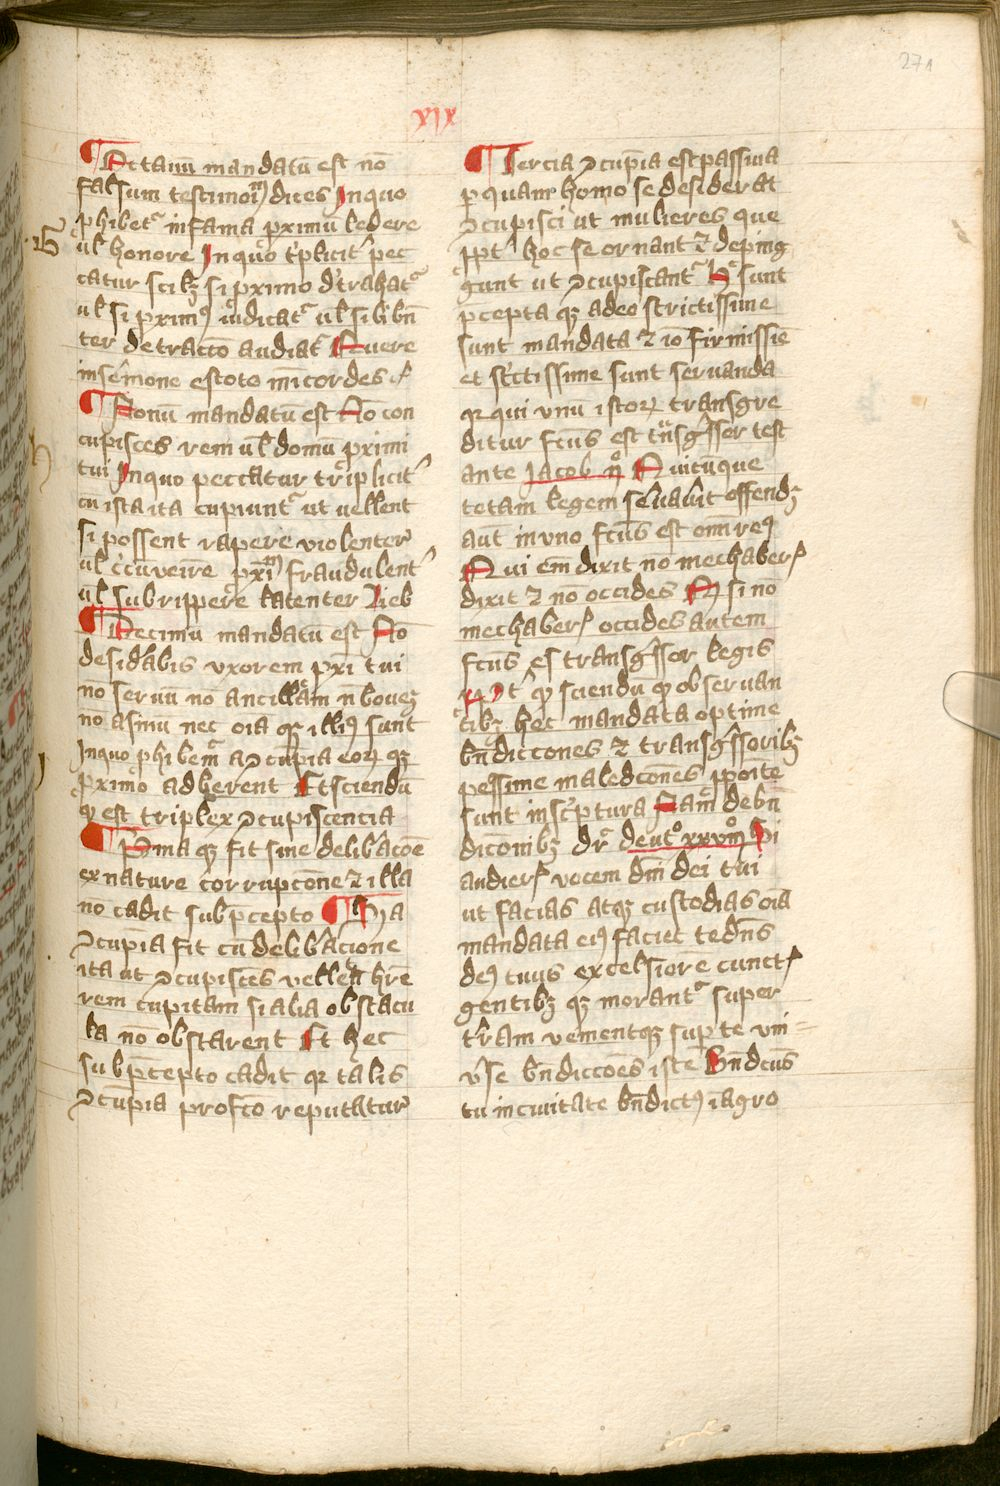 271
xix
¶ Octauū mandatū est nō
falsum testimoīm dices Inquo
ꝓhibetᷣ infama ꝓximū ledere
ul̄ honore Inquo tͥpliciṫ pec
catur scilꝫ si ꝓximo det͛hatᷣ
ul̄ si ꝓximꝰ iudicatᷣ ul̄ si libn̄
ter detractiō audiat Rᷣuere
in sermone estote mīcordes
¶ Nonū mandatū est Nō con
cupisces rem ul̄ domū ꝓximi
tui Inquo peccatur tripliciṫ
cū ista ita cupiuntᷣ ut uellent
si possent rapere violenter
ul̄ cͥcūueīre ꝓxīm fraudulenṫ
ul̄ subrippere latenter
¶ Decimū mandatū est Nō
desidabis vxorem ꝓxi tui
nō seruū nō ancillam n̄ bouēꝫ
nō asinū nec oīa qꝫ illiꝰ sunt
Inquo ꝓhibemᷣ a ↄcupīa eoꝝ qꝫ
ꝓximo adherent Et sciendū
ꝙ est triplex ↄcupiscencia
¶ Pͥma qꝫ fit sine delibacōe
ex nature corrupcōne ⁊ illa
nō cadit sub p̄cepto ¶ Sᷓa
ↄcupīa fit cū delibacione
ita ut ↄcupisces vellet hr̄e
rem cupitam si alia obstacu
la nō obstarent Et hec
sub p̄cepto cadit qꝛ talis
ↄcupīa pro fc̄o reputatur
¶ Tercia ↄcupīa est passiua
ꝑ quam homo se desiderat
ↄcupisci ut mulieres que
ꝓptͥ hoc se ornant ⁊ deping
gunt ut ↄcupiscantᷣ Hᷓ sunt
p̄cepta qꝫ adeo strictissime
sunt mandata ⁊ iō firmissīe
et sctͥctissime sunt seruanda
qꝛ qui vnū istoꝝ transgre
ditur fc̄us est tᷓnsgssor test
ante Jacob 2º Quicūque
totam legem seruauit offendꝫ
aut̄ in vno fc̄us est om̄ reꝰ
Qui em̄ dixit nō mechaberꝭ
dixit ⁊ nō occides Qͩ si nō
mechaberꝭ occides autem
fc̄us es transgssor legis
ꝙ sciendū ꝙ obseruan
tibꝫ hec mandata optime
bn̄diccones ⁊ transgssoribꝫ
pessime maledcōnes ꝓpoīte
sunt in scͥptura Nam de bn̄
diccōnibꝫ dr̄ deutº xxviij Si
audierꝭ vocem dn̄i dei tui
ut facias atqꝫ custodias oīa
mandata eiꝰ faciet te dn̄s
deꝰ tuus excelsiorē cunctꝭ
gentibꝫ qꝫ morantᷣ super
tr̄am vementqꝫ super te vni
v̄se bn̄diccōes iste Bn̄dcūs
tu in ciuitate bn̄dictꝰ ī agro